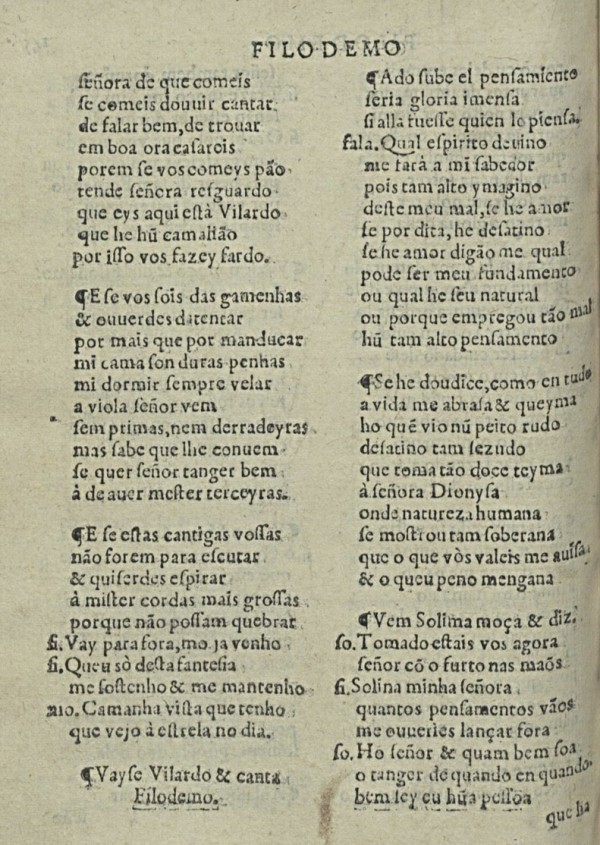 FILODEMO
señora de que comeis
se comeis douuir cantar
de falar bem, de trouar
em boa ora casareis
porem se vos comeys pão
tende señora resguardo
que eys aqui està Vilardo
que he hũ camalião
por isso vos fazey fardo.
¶E se vos sois das gamenhas
& ouuerdes datentar
por mais que por manducar
mi cama son duras penhas
mi dormir sempre velar
a viola señor vem
sem primas, nem derradeyras
mas sabe que lhe conuem
se quer señor tanger bem
à de auer mester terceyras.
¶E se estas cantigas vossas
não forem para escutar
& quiserdes espirar
à mister cordas mais grossas
porque não possam quebrar
fi. Vay para fora, mo. ja venho
fi. Queu sò desta fantesia
me sostenho & me mantenho
mo. Camanha vista que tenho
que vejo à estrela no dia.
¶Vayse Vilardo & canta
Filodemo.
¶Ado sube el pensamiento
seria gloria imensa
si alla fuesse quien lo piensa.
fala. Qual espirito deuino
me farà a mi sabedor
pois tam alto ymagino
deste meu mal, se he amor
se por dita, he desatino
se he amor digão me qual
pode ser meu fundamento
ou qual he seu natural
ou porque empregou tão mal
hũ tam alto pensamento
¶Se he doudice, como en tudo
a vida me abrasa & queyma
ho quẽ vio nũ peito rudo
desatino tam sezudo
que toma tão doce teyma
à señora Dionysa
onde natureza humana
se mostrou tam soberana
que o que vòs valeis me auisa
& o queu peno mengana
¶Vem Solima moça & diz.
so. Tomado estais vos agora
señor cõ o furto nas maõs
fi. Solina minha señora
quantos pensamentos vãos
me ouueries lançar fora
so. Ho señor & quam bem soa
o tanger de quando en quando
bem sey eu hũa pessoa
que ha